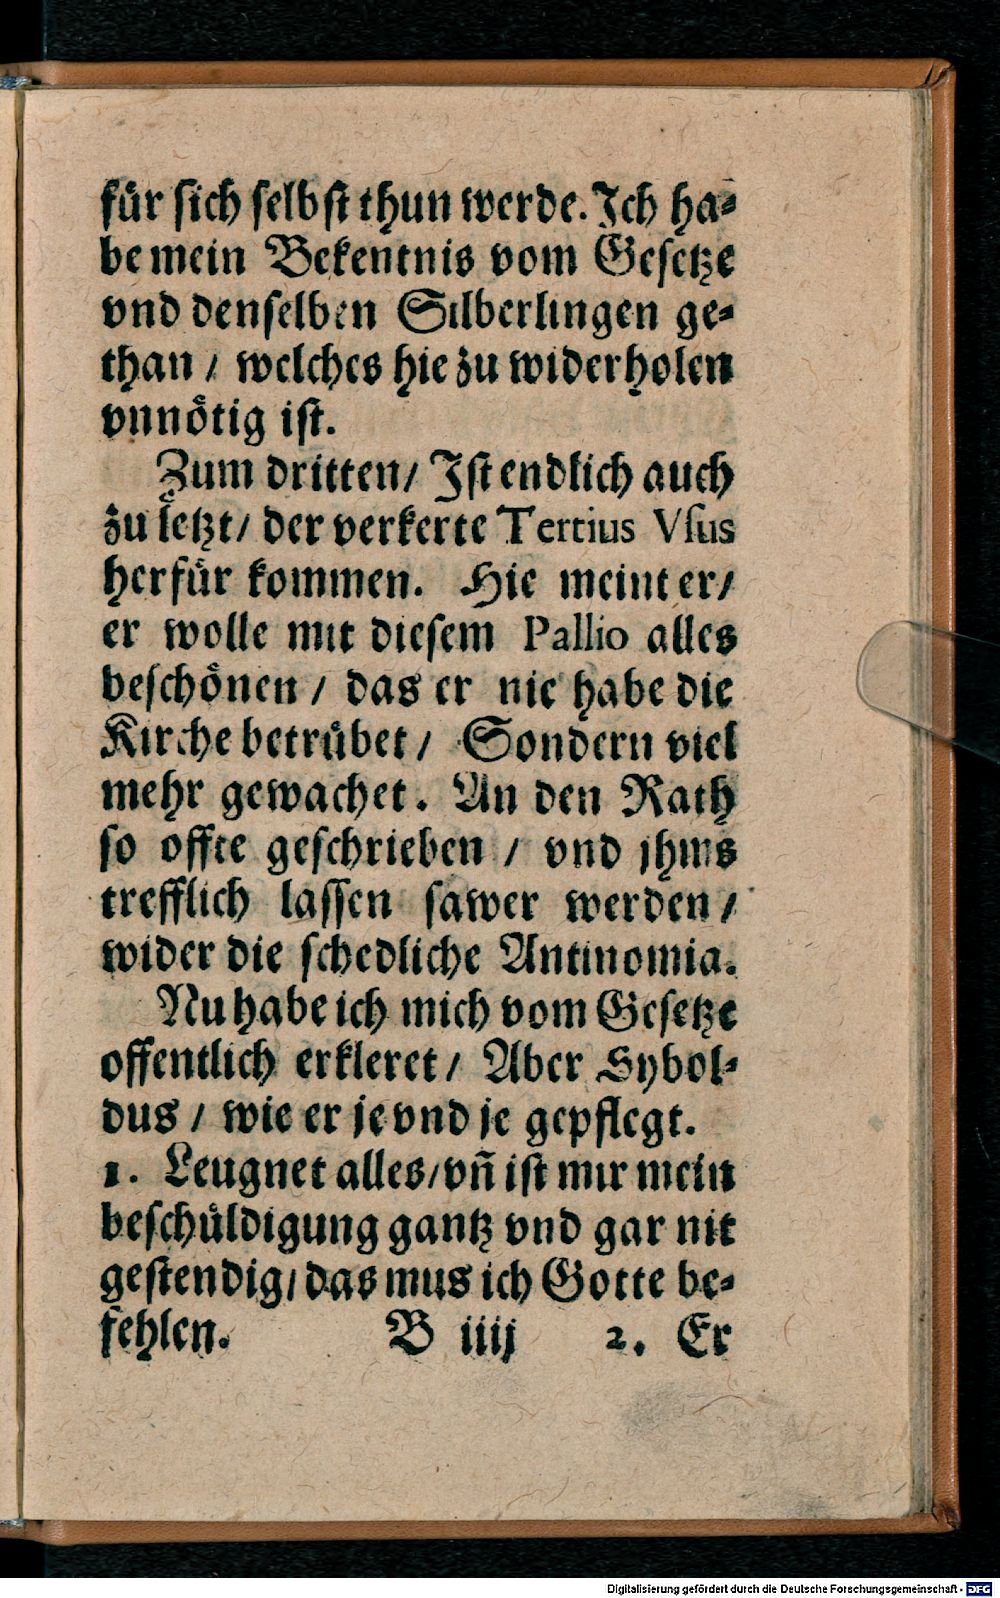 fuͤr sich selbst thun werde. Ich ha⸗
be mein Bekentnis vom Gesetze
vnd denselben Silberlingen ge⸗
than / welches hie zu widerholen
vnnoͤtig ist.
Zum dritten / Ist endlich auch
zu letzt / der verkerte Tertius Vsus
herfuͤr kommen. Hie meint er /
er wolle mit diesem Pallio alles
beschoͤnen / das er nie habe die
Kirche betruͤbet / Sondern viel
mehr gewachet. An den Rath
so offte geschrieben / vnd jhms
trefflich lassen sawer werden /
wider die schedliche Antinomia.
Nu habe ich mich vom Gesetze
offentlich erkleret / Aber Sybol⸗
dus / wie er je vnd je gepflegt.
1. Leugnet alles / vñ ist mir mein
beschuͤldigung gantz vnd gar nit
gestendig / das mus ich Gotte be⸗
fehlen. B iiij 2. Er
Digitalisierung gefördert durch die Deutsche Forschungsgemeinschaft - DFG